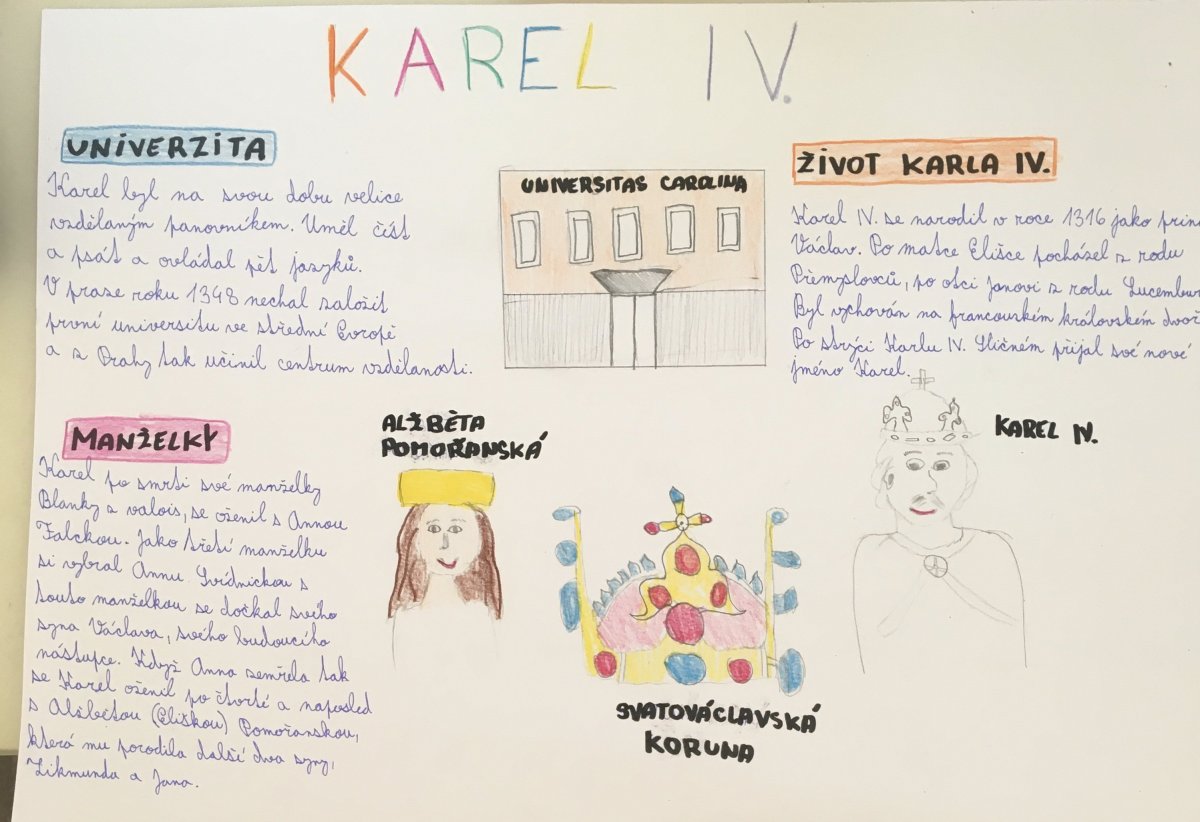 KAREL IV.
UNIVERZITA
Karel byl na svou dobu velice
vzdělaným panovníkem. Uměl číst
a psát a ovládal pět jazyků.
V praze roku 1348 nechal založit
první universitu ve střední Evropě
a z Prahy tak učinil centrum vzdělanosti.
UNIVERSITAS CAROLINA
ŽIVOT KARLA IV.
Karel IV. se narodil v roce 1316 jako prin
Václav. Po matce Elišce pocházel z rodu
Přemyslovců, po otci Janovi z rodu Lucembur
Byl vychován na francouzském královském dvoř
Po strýci Karlu IV. Sličném přijal své nové
jméno Karel.
MANŽELKY
Karel po smrti své manželky
Blanky z valois, se oženil s Annou
Falckou. Jako třetí manželku
si vybral Annu Svídnickou s
touto manželkou se dočkal svého
syna Václava, svého budoucího
nástupce. Když Anna zemřela tak
se Karel oženil po čtvrté a naposled
s Alžbětou (Eliškou) Pomořanskou,
která mu porodila další dva syny,
Zikmunda a Jana.
ALŽBĚTA
POMOŘANSKÁ
KAREL IV.
SVATOVÁCLAVSKÁ
KORUNA